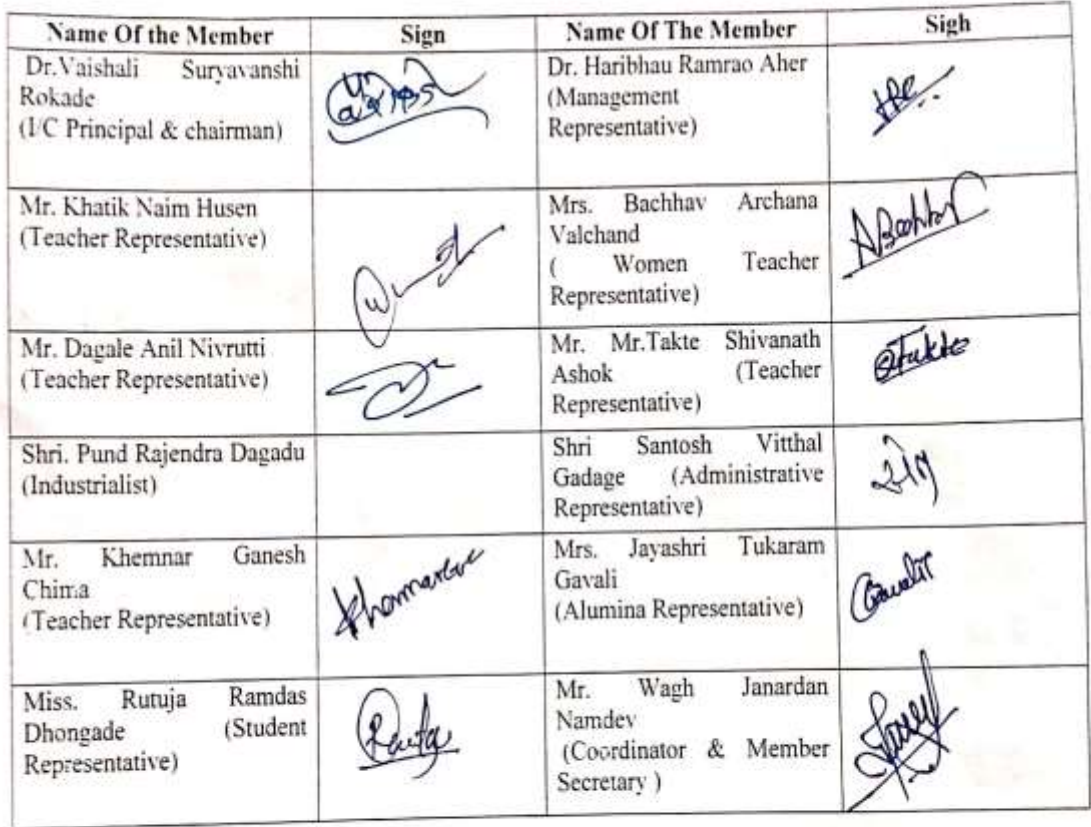 Name Of the Member Sign Name Of The Member Sigh
Dr.Vaishali Suryavanshi
Rokade
(I/C Principal & chairman)
Dr. Haribhau Ramrao Aher
(Management
Representative)
Mr. Khatik Naim Husen
(Teacher Representative)
Mrs. Bachhav Archana
Valchand
( Women Teacher
Representative)
ABachhav
Mr. Dagale Anil Nivrutti
(Teacher Representative)
Mr. Mr.Takte Shivanath
Ashok (Teacher
Representative)
Takte
Shri. Pund Rajendra Dagadu
(Industrialist)
Shri Santosh Vitthal
Gadage (Administrative
Representative)
Mr. Khemnar Ganesh
Chima
(Teacher Representative)
Khemnar
Mrs. Jayashri Tukaram
Gavali
(Alumina Representative)
Miss. Rutuja Ramdas
Dhongade (Student
Representative)
Mr. Wagh Janardan
Namdev
(Coordinator & Member
Secretary )